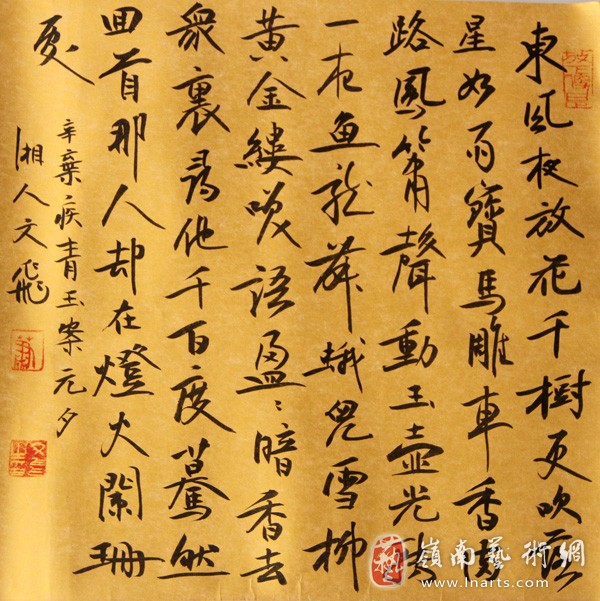 東風夜放花千樹更吹落
星如雨寶馬雕車香滿
路鳳簫聲動玉壺光轉
一夜魚龍舞蛾兒雪柳
黄金縷笑語盈〻暗香去
衆裏尋他千百度驀然
回首那人却在燈火闌珊
處
辛棄疾青玉案元夕
湘人文飛
嶺南藝術網
www.lnarts.com